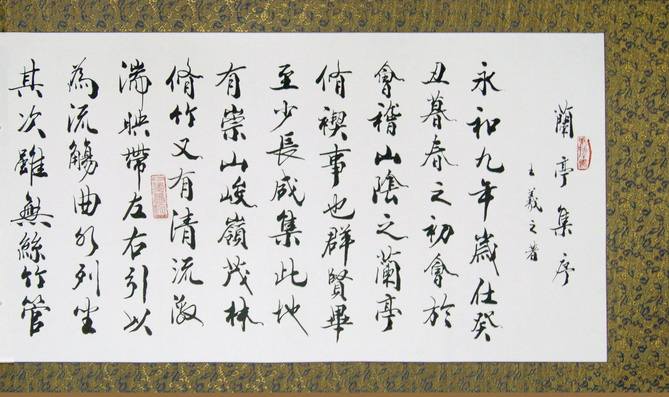 蘭亭集序
王羲之著
永和九年歲在癸
丑暮春之初會於
會稽山陰之蘭亭
脩禊事也群賢畢
至少長咸集此地
有崇山峻嶺茂林
脩竹又有清流激
湍映帶左右引以
為流觴曲水列坐
其次雖無絲竹管